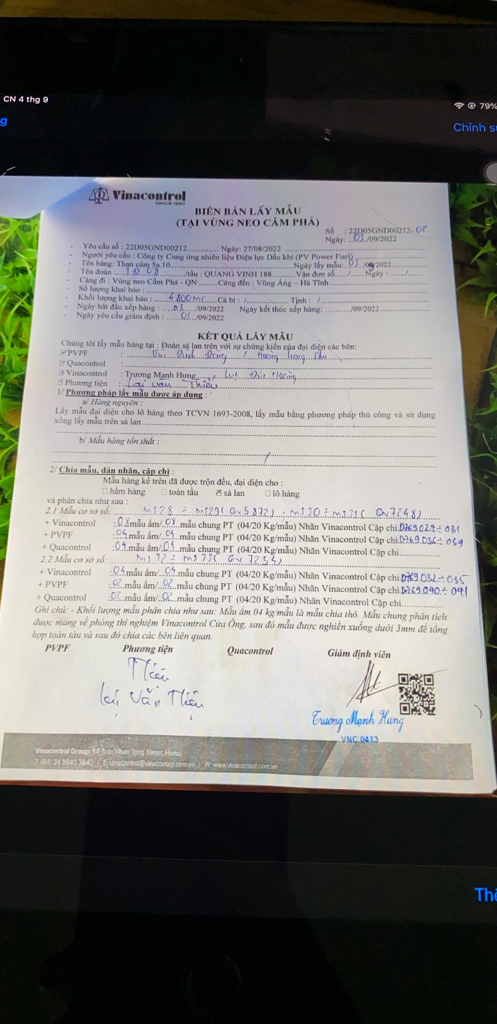 CN 4 thg 9
79%
g
Chỉnh sử
Vinacontrol
SINCE 1957
BIÊN BẢN LẤY MẪU
(TẠI VÙNG NEO CẨM PHẢ)
Số : 22D05GND00212-
Ngày: 03/09/2022
- Yêu cầu số : 22D05GND00212 Ngày: 27/08/2022
- Người yêu cầu : Công ty Cung ứng nhiên liệu Điện lực Dầu khí (PV Power Fuel)
- Tên hàng: Than cám 5a.10 Ngày lấy mẫu: 03/09/2022
- Tên đoàn : TD 08 /tàu : QUANG VINH 188 Vận đơn số:..../.... Ngày :...../
- Cảng đi : Vùng neo Cẩm Phả - QN Cảng đến : Vũng Áng – Hà Tĩnh
- Số lượng khai báo :
- Khối lượng khai báo : 4.800 MT Ca bì : / Tịnh : /
- Ngày bắt đầu xếp hàng : 03 /09/2022 Ngày kết thúc xếp hàng: /09/2022
- Ngày yêu cầu giám định : 03 /09/2022
KẾT QUẢ LẤY MẪU
Chúng tôi lấy mẫu hàng tại : Đoàn sà lan trên với sự chứng kiến của đại diện các bên:
☑ PVPF : Bùi Đình / Hoàng
☐ Quacontrol :
☑ Vinacontrol : Trương Mạnh Hưng Đức Hoàng
☐ Phương tiện : Lại Văn Thiêu
1/ Phương pháp lấy mẫu được áp dụng :
a/ Hàng nguyên :
Lấy mẫu đại diện cho lô hàng theo TCVN 1693-2008, lấy mẫu bằng phương pháp thủ công và sử dụng
xông lấy mẫu trên sà lan
b/ Mẫu hàng tổn thất : /
2/ Chia mẫu, dán nhãn, cặp chì :
Mẫu hàng kể trên đã được trộn đều, đại diện cho :
☐ hầm hàng ☐ toàn tàu ☑ sà lan ☐ lô hàng
và phân chia như sau :
2.1 Mẫu cơ sở số: M128 ÷ M129( QN5872) ; M130 ÷ M131( QN7248)
+ Vinacontrol :08 mẫu ẩm/ 08 mẫu chung PT (04/20 Kg/mẫu) Nhãn Vinacontrol Cặp chì
+ PVPF :04 mẫu ẩm/ 04 mẫu chung PT (04/20 Kg/mẫu) Nhãn Vinacontrol Cặp chì
+ Quacontrol :04 mẫu ẩm/ 04 mẫu chung PT (04/20 Kg/mẫu) Nhãn Vinacontrol Cặp chì
2.2 Mẫu cơ sở số: M132 ÷ M133( QN 7254)
+ Vinacontrol :04 mẫu ẩm/ 04 mẫu chung PT (04/20 Kg/mẫu) Nhãn Vinacontrol Cặp chì
+ PVPF :02 mẫu ẩm/ 02 mẫu chung PT (04/20 Kg/mẫu) Nhãn Vinacontrol Cặp chì
+ Quacontrol :02 mẫu ẩm/ 02 mẫu chung PT (04/20 Kg/mẫu) Nhãn Vinacontrol Cặp chì
Ghi chú: - Khối lượng mẫu phân chia như sau: Mẫu ẩm 04 kg/mẫu là mẫu chia thô. Mẫu chung phân tích
được mang về phòng thí nghiệm Vinacontrol Cửa Ông, sau đó mẫu được nghiền xuống dưới 3mm để tổng
hợp toàn tàu và sau đó chia các bên liên quan.
PVPF Phương tiện Quacontrol Giám định viên
Thiêu
Lại Văn Thiêu
Trương Mạnh Hưng
VNC 0413
Vinacontrol Group: 54 Tran Nhan Tong Street, Hanoi
T: (84) 24 3943 3840 | E: vinacontrol@vinacontrol.com.vn | W: www.vinacontrol.com.vn
Thê